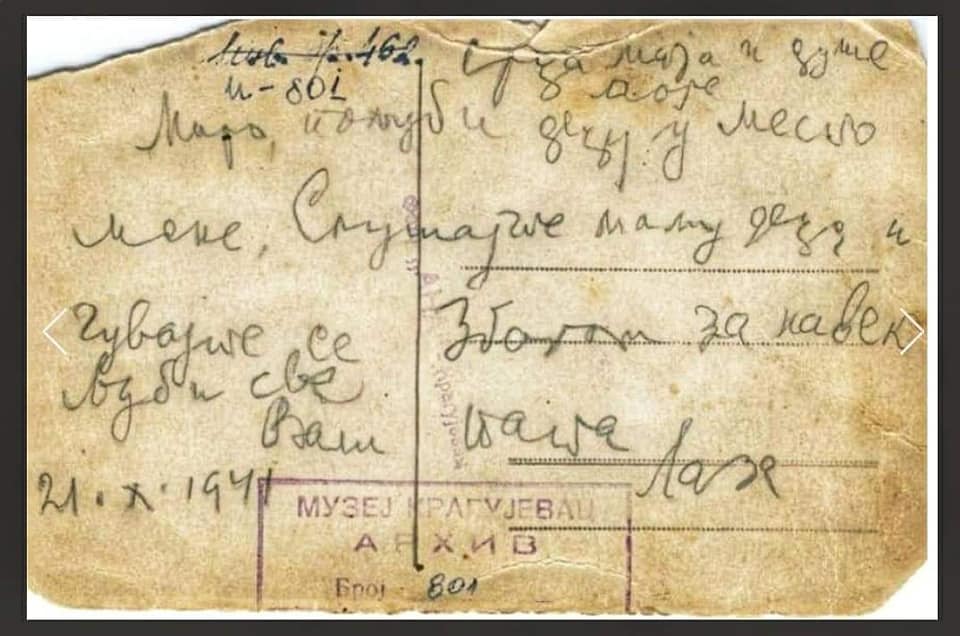 И-801
Срца моја и душе
моје
Маро, пољуби децу у место
мене, Слушајте маму децо и
Чувајте се Збогом за навек
Љуби све
Ваш тата
Лаза
21. X. 1941
МУЗЕЈ КРАГУЈЕВАЦ
АРХИВ
Број 801